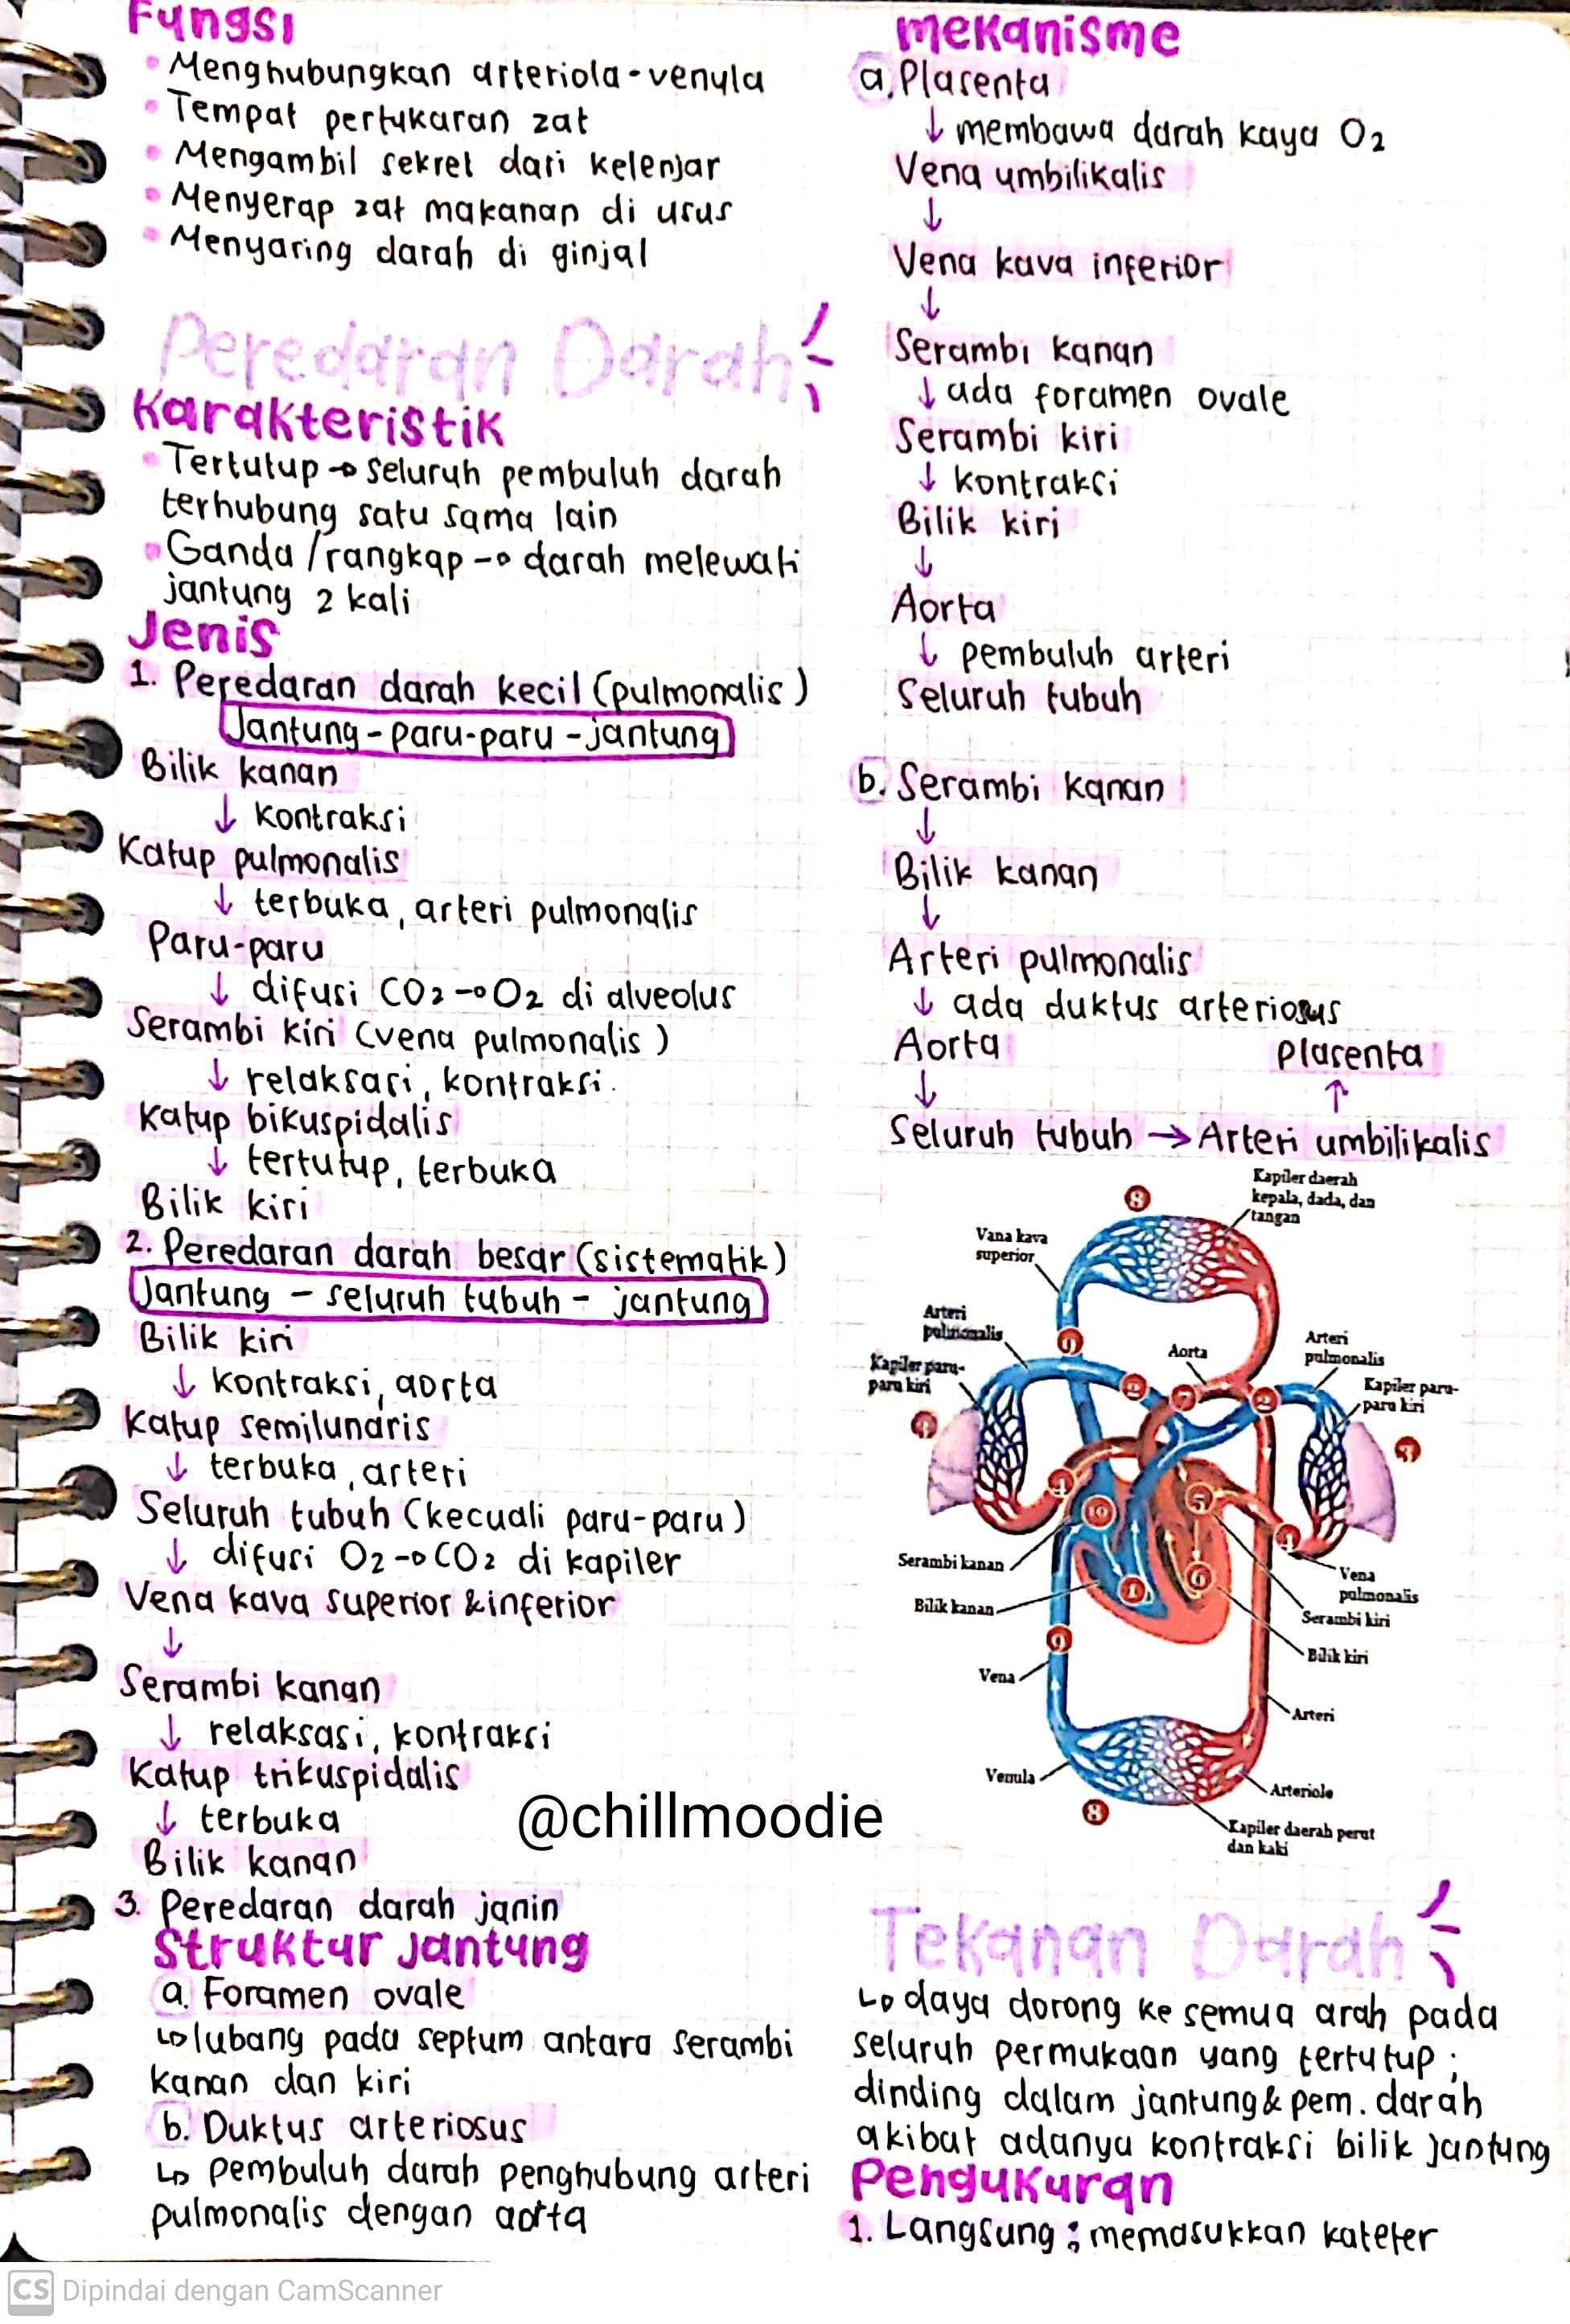 Fungsi
• Menghubungkan arteriola-venula
• Tempat pertukaran zat
• Mengambil sekret dari kelenjar
• Menyerap zat makanan di usus
• Menyaring darah di ginjal
Peredaran Darah
Karakteristik
• Tertutup → seluruh pembuluh darah
terhubung satu sama lain
• Ganda/rangkap → darah melewati
jantung 2 kali
Jenis
1. Peredaran darah kecil (pulmonalis)
Jantung - paru-paru - jantung
Bilik kanan
↓ kontraksi
Katup pulmonalis
↓ terbuka, arteri pulmonalis
Paru-paru
↓ difusi CO2 → O2 di alveolus
Serambi kiri (vena pulmonalis)
↓ relaksasi, kontraksi.
Katup bikuspidalis
↓ tertutup, terbuka
Bilik kiri
2. Peredaran darah besar (sistematik)
Jantung - seluruh tubuh - jantung
Bilik kiri
↓ kontraksi, aorta
Katup semilunaris
↓ terbuka, arteri
Seluruh tubuh (kecuali paru-paru)
↓ difusi O2 → CO2 di kapiler
Vena kava superior & inferior
↓
Serambi kanan
↓ relaksasi, kontraksi
Katup trikuspidalis
↓ terbuka
Bilik kanan
3. Peredaran darah janin
Struktur jantung
a. Foramen ovale
↳ lubang pada septum antara serambi
kanan dan kiri
b. Duktus arteriosus
↳ pembuluh darah penghubung arteri
pulmonalis dengan aorta
mekanisme
a. Plasenta
↓ membawa darah kaya O2
Vena umbilikalis
↓
Vena kava inferior
↓
Serambi kanan
↓ ada foramen ovale
Serambi kiri
↓ kontraksi
Bilik kiri
↓
Aorta
↓ pembuluh arteri
Seluruh tubuh
b. Serambi kanan
↓
Bilik kanan
↓
Arteri pulmonalis
↓ ada duktus arteriosus
Aorta
Plasenta
↓ ↑
Seluruh tubuh → Arteri umbilikalis
Kapiler daerah
kepala, dada, dan
tangan
8
Vana kava
superior
Arteri
pulmonalis
9
Aorta
Arteri
pulmonalis
Kapiler paru-
paru kiri
2
7
2
Kapiler paru-
paru kiri
3
4
10
5
4
Serambi kanan
Vena
pulmonalis
1
6
Bilik kanan
Serambi kiri
9
Bilik kiri
Vena
Arteri
Venula
Arteriole
8
Kapiler daerah perut
dan kaki
@chillmoodie
Tekanan Darah
↳ daya dorong ke semua arah pada
seluruh permukaan yang tertutup;
dinding dalam jantung & pem. darah
akibat adanya kontraksi bilik jantung
Pengukuran
1. Langsung; memasukkan kateter
CS Dipindai dengan CamScanner